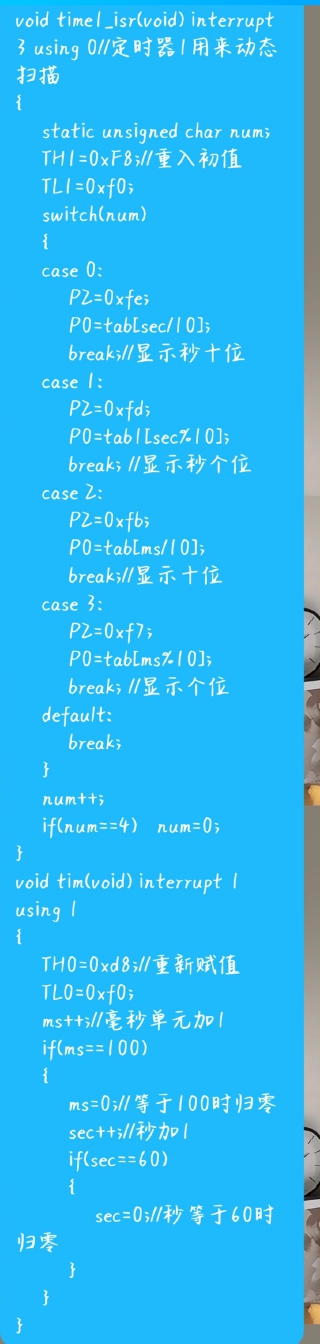 void time1_isr(void) interrupt
3 using 0//定时器1用来动态
扫描
{
static unsigned char num;
TH1=0xF8;//重入初值
TL1=0xf0;
switch(num)
{
case 0:
P2=0xfe;
P0=tab[sec/10];
break;//显示秒十位
case 1:
P2=0xfd;
P0=tab1[sec%10];
break; //显示秒个位
case 2:
P2=0xfb;
P0=tab[ms/10];
break;//显示十位
case 3:
P2=0xf7;
P0=tab[ms%10];
break; //显示个位
default:
break;
}
num++;
if(num==4) num=0;
}
void tim(void) interrupt 1
using 1
{
TH0=0xd8;//重新赋值
TL0=0xf0;
ms++;//毫秒单元加1
if(ms==100)
{
ms=0;//等于100时归零
sec++;//秒加1
if(sec==60)
{
sec=0;//秒等于60时
归零
}
}
}